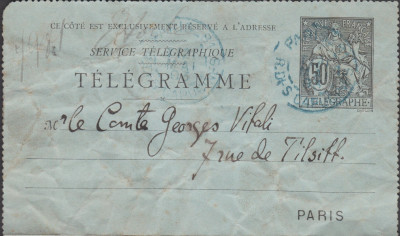 CE CÔTÉ EST EXCLUSIVEMENT RÉSERVÉ A L'ADRESSE
SERVICE TÉLÉGRAPHIQUE
TÉLÉGRAMME
50
TELEGRAPHE
PARIS
Mr le Comte Georges Vitali
7 rue de Tilsitt.
PARIS